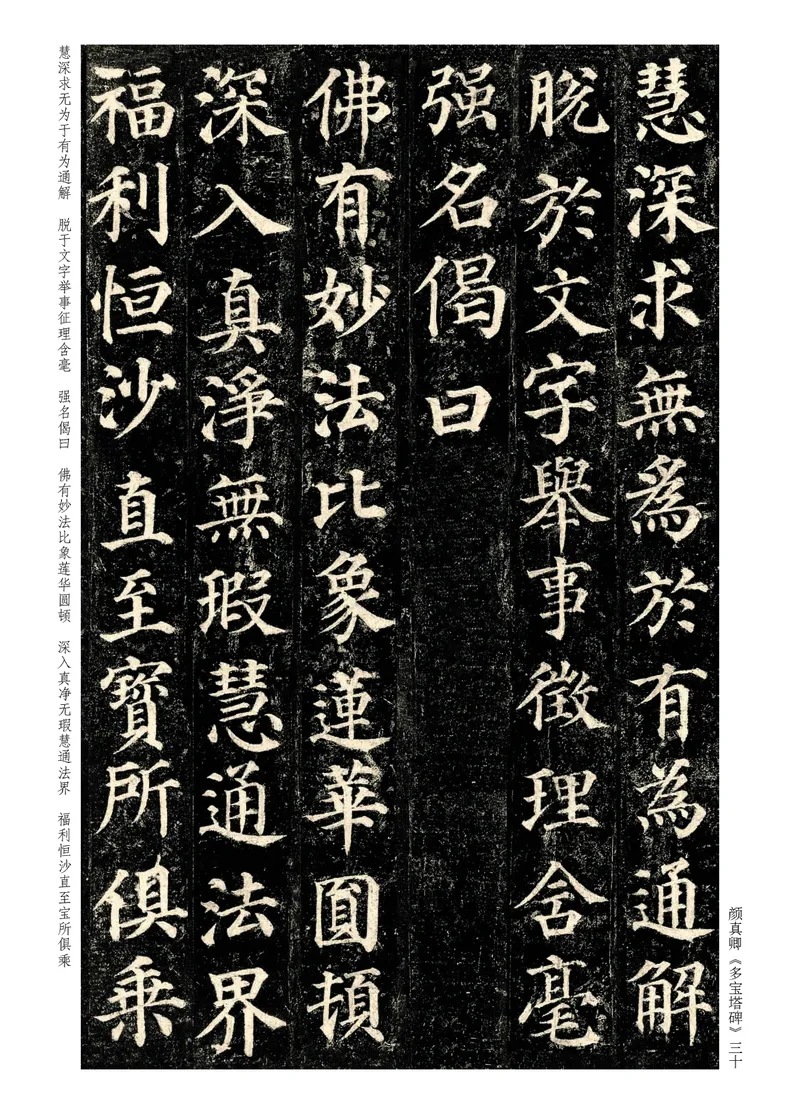 慧深求無為於有為通解
脫於文字舉事徵理含毫
强名偈曰
佛有妙法比象蓮華圓頓
深入真淨無瑕慧通法界
福利恒沙直至寶所俱乘
颜真卿《多宝塔碑》三十
慧深求无为于有为通解 脱于文字举事征理含毫 强名偈曰 佛有妙法比象莲华圆顿 深入真净无瑕慧通法界 福利恒沙直至宝所俱乘